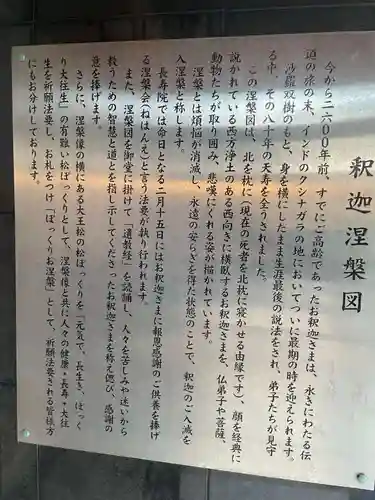 釈迦涅槃図
今から二六〇〇年前、すでにご高齢であったお釈迦さまは、永きにわたる伝
道の旅の末、インドのクシナガラの地においてついに最期の時を迎えられます。
沙羅双樹のもと、身を横にしたまま生涯最後の説法をされ、弟子たちが見守
る中、その八十年の天寿を全うされました。
この涅槃図は、北を枕に（現在の死者を北枕に寝かせる由縁です）、顔を経典に
説かれている西方浄土のある西向きに横臥するお釈迦さまを、仏弟子や菩薩、
動物たちが取り囲み、悲嘆にくれる姿が描かれています。
涅槃とは煩悩が消滅し、永遠の安らぎを得た状態のことで、釈迦のご入滅を
入涅槃と称します。
長寿院では命日となる二月十五日にはお釈迦さまに報恩感謝のご供養を捧げ
る涅槃会（ねはんえ）と言う法要が執り行われます。
また、涅槃図を御堂に掛けて『遺教経』を読誦し、人々を苦しみや迷いから
救うための智慧と道とを指し示してくださったお釈迦さまを称え偲び、感謝の
意を捧げます。
さらに、涅槃像の横にある大王松の松ぼっくりを『元気で、長生き、ぽっく
り大往生』の有難い松ぼっくりとして、涅槃像と共に人々の健康・長寿・大往
生を祈願法要し、お札をつけ「ぽっくりお涅槃」として、祈願法要される皆様方
にもお分けしております。